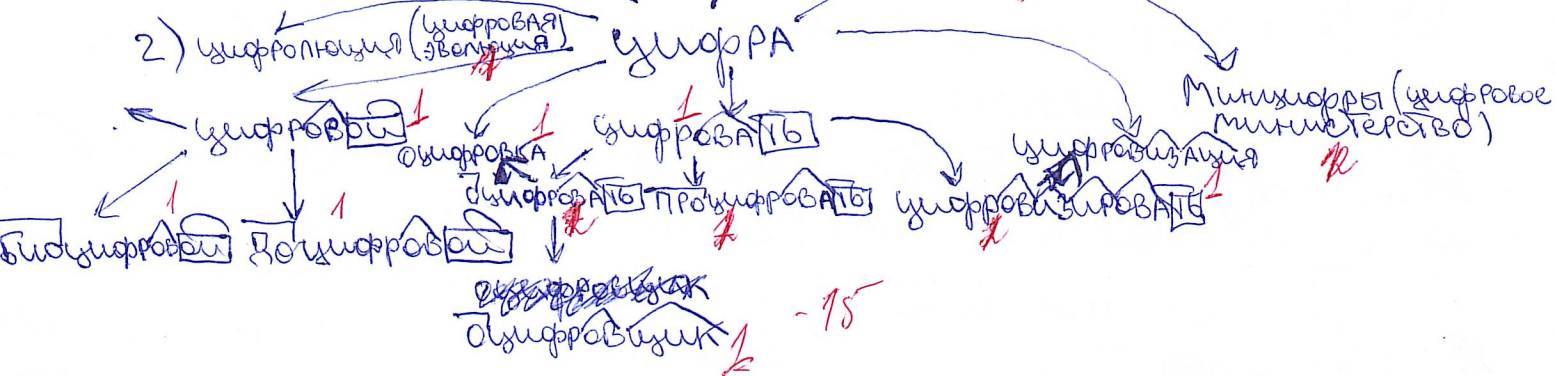 2) цифролюция (цифровая эволюция) 1
цифра
Минцифры (цифровое министерство)
цифровой 1
оцифровка 1
цифровать 1
цифровизация
оцифровать
процифровать 1
цифровизировать 1
биоцифровой 1
доцифровой 1
оцифровщик 1
-15